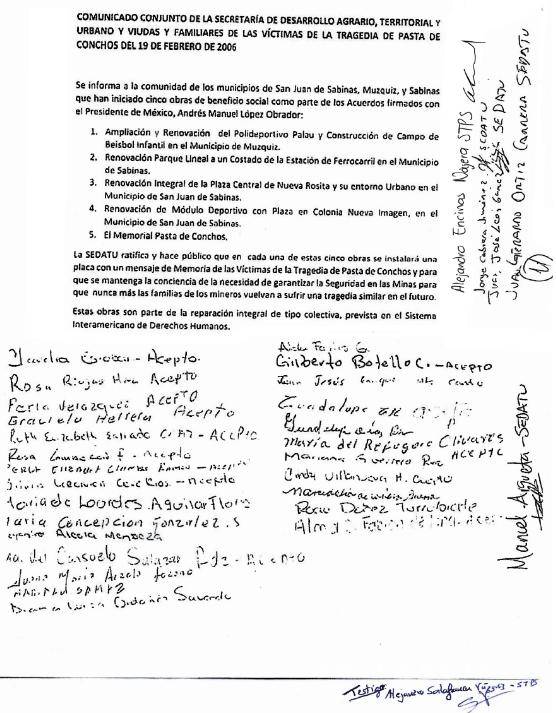 COMUNICADO CONJUNTO DE LA SECRETARÍA DE DESARROLLO AGRARIO, TERRITORIAL Y
URBANO Y VIUDAS Y FAMILIARES DE LAS VÍCTIMAS DE LA TRAGEDIA DE PASTA DE
CONCHOS DEL 19 DE FEBRERO DE 2006
Se informa a la comunidad de los municipios de San Juan de Sabinas, Muzquiz, y Sabinas
que han iniciado cinco obras de beneficio social como parte de los Acuerdos firmados con
el Presidente de México, Andrés Manuel López Obrador:
1. Ampliación y Renovación del Polideportivo Palau y Construcción de Campo de
Beisbol Infantil en el Municipio de Muzquiz.
2. Renovación Parque Lineal a un Costado de la Estación de Ferrocarril en el Municipio
de Sabinas.
3. Renovación Integral de la Plaza Central de Nueva Rosita y su entorno Urbano en el
Municipio de San Juan de Sabinas.
4. Renovación de Módulo Deportivo con Plaza en Colonia Nueva Imagen, en el
Municipio de San Juan de Sabinas.
5. El Memorial Pasta de Conchos.
La SEDATU ratifica y hace público que en cada una de estas cinco obras se instalará una
placa con un mensaje de Memoria de las Víctimas de la Tragedia de Pasta de Conchos y para
que se mantenga la conciencia de la necesidad de garantizar la Seguridad en las Minas para
que nunca más las familias de los mineros vuelvan a sufrir una tragedia similar en el futuro.
Estas obras son parte de la reparación integral de tipo colectiva, prevista en el Sistema
Interamericano de Derechos Humanos.
Alejandro Encinas Najera STPS
Jorge Cabrera Jiménez SEDATU
José SEDATU
Juan Gerardo Ortiz Carrera SEDATU
Manuel Argueta-SEDATU
- Acepto.
Rosa Riojas Acepto
Velazquez Acepto
Graciela Herrera Acepto
Elizabeth - ACEPTO
Rosa - Acepto
- Acepto
- Acepto
de Lourdes Aguilar Flores
Concepcion Gonzalez. S
Mendoza
Ma. del Consuelo Salazar - Acepto
Maria
G.
Gilberto Botello C. - ACEPTO
Juan Jesús
Guadalupe
María del Refugio Olivares
Mariana Guerrero ACEPTO
Villanueva H.
Alma
Testigo Alejandro - STPS